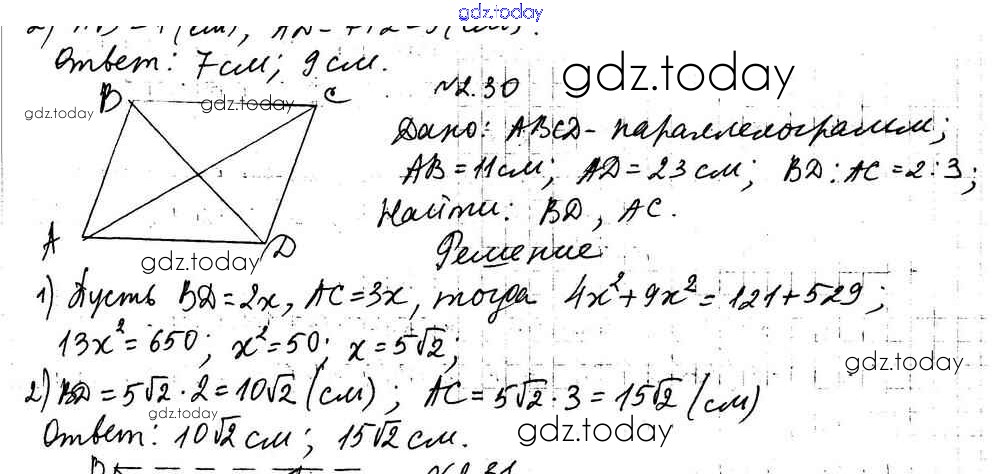 gdz.today
Ответ: 7 см; 9 см.
gdz.today
№2.30
B
gdz.today
C
gdz.today
Дано: ABCD - параллелограмм;
AB = 11 см; AD = 23 см; BD : AC = 2 : 3;
Найти: BD, AC.
A
D
gdz.today
Решение
1) Пусть BD = 2x, AC = 3x, тогда 4x² + 9x² = 121 + 529;
13x² = 650; x² = 50; x = 5√2;
gdz.today
2) BD = 5√2 · 2 = 10√2 (см); AC = 5√2 · 3 = 15√2 (см)
gdz.today
Ответ: 10√2 см; 15√2 см.
gdz.today